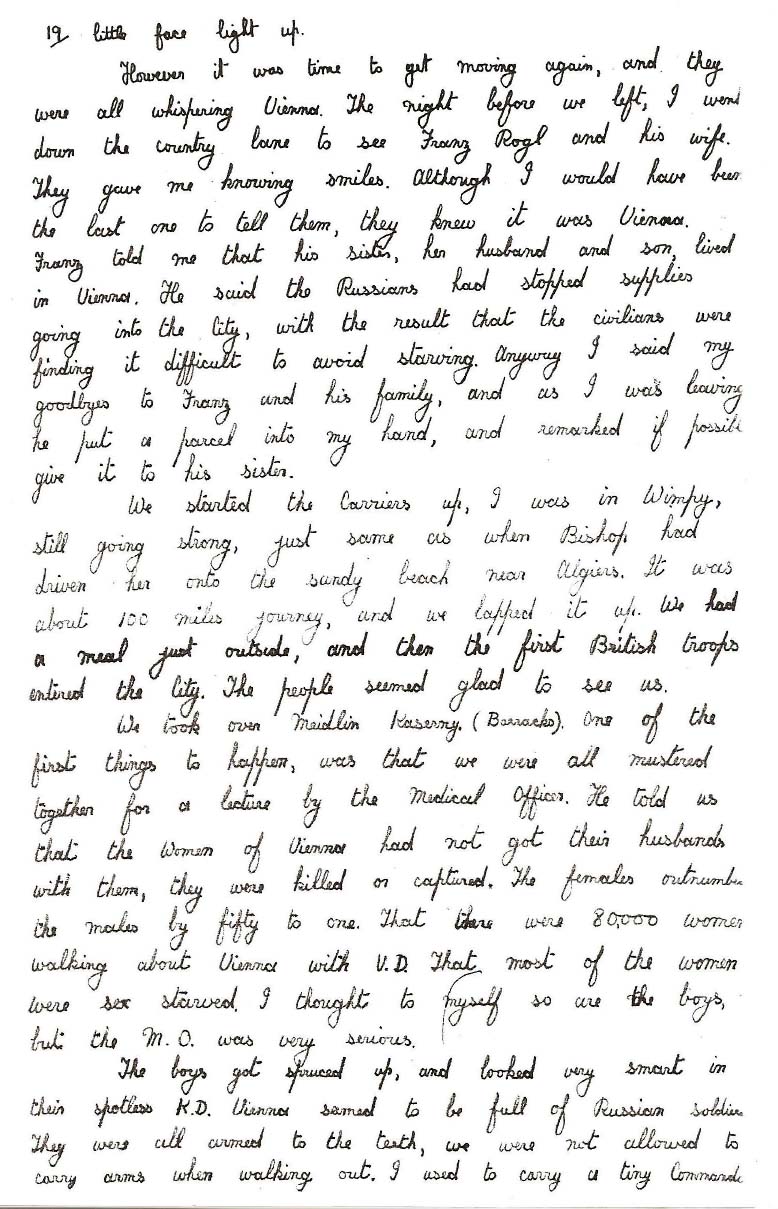 19/ little face light up.
However it was time to get moving again, and they
were all whispering Vienna. The night before we left, I went
down the country lane to see Franz Rogl and his wife.
They gave me knowing smiles. Although I would have been
the last one to tell them, they knew it was Vienna.
Franz told me that his sister, her husband and son, lived
in Vienna. He said the Russians had stopped supplies
going into the City, with the result that the civilians were
finding it difficult to avoid starving. Anyway I said my
goodbyes to Franz and his family, and as I was leaving
he put a parcel into my hand, and remarked if possible
give it to his sister.
We started the Carriers up, I was in Wimpy,
still going strong, just same as when Bishop had
driven her onto the sandy beach near Algiers. It was
about 100 miles journey, and we lapped it up. We had
a meal just outside, and then the first British troops
entered the City. The people seemed glad to see us.
We took over Meidlin Kaserny. (Barracks). One of the
first things to happen, was that we were all mustered
together for a lecture by the Medical Officer. He told us
that the Women of Vienna had not got their husbands
with them, they were killed or captured. The females outnumber
the males by fifty to one. That there were 80,000 women
walking about Vienna with V.D. That most of the women
were sex starved. I thought to myself so are the boys,
but the M.O. was very serious.
The boys got spruced up, and looked very smart in
their spotless K.D. Vienna semed to be full of Russian soldiers
They were all armed to the teeth, we were not allowed to
carry arms when walking out. I used to carry a tiny Commando